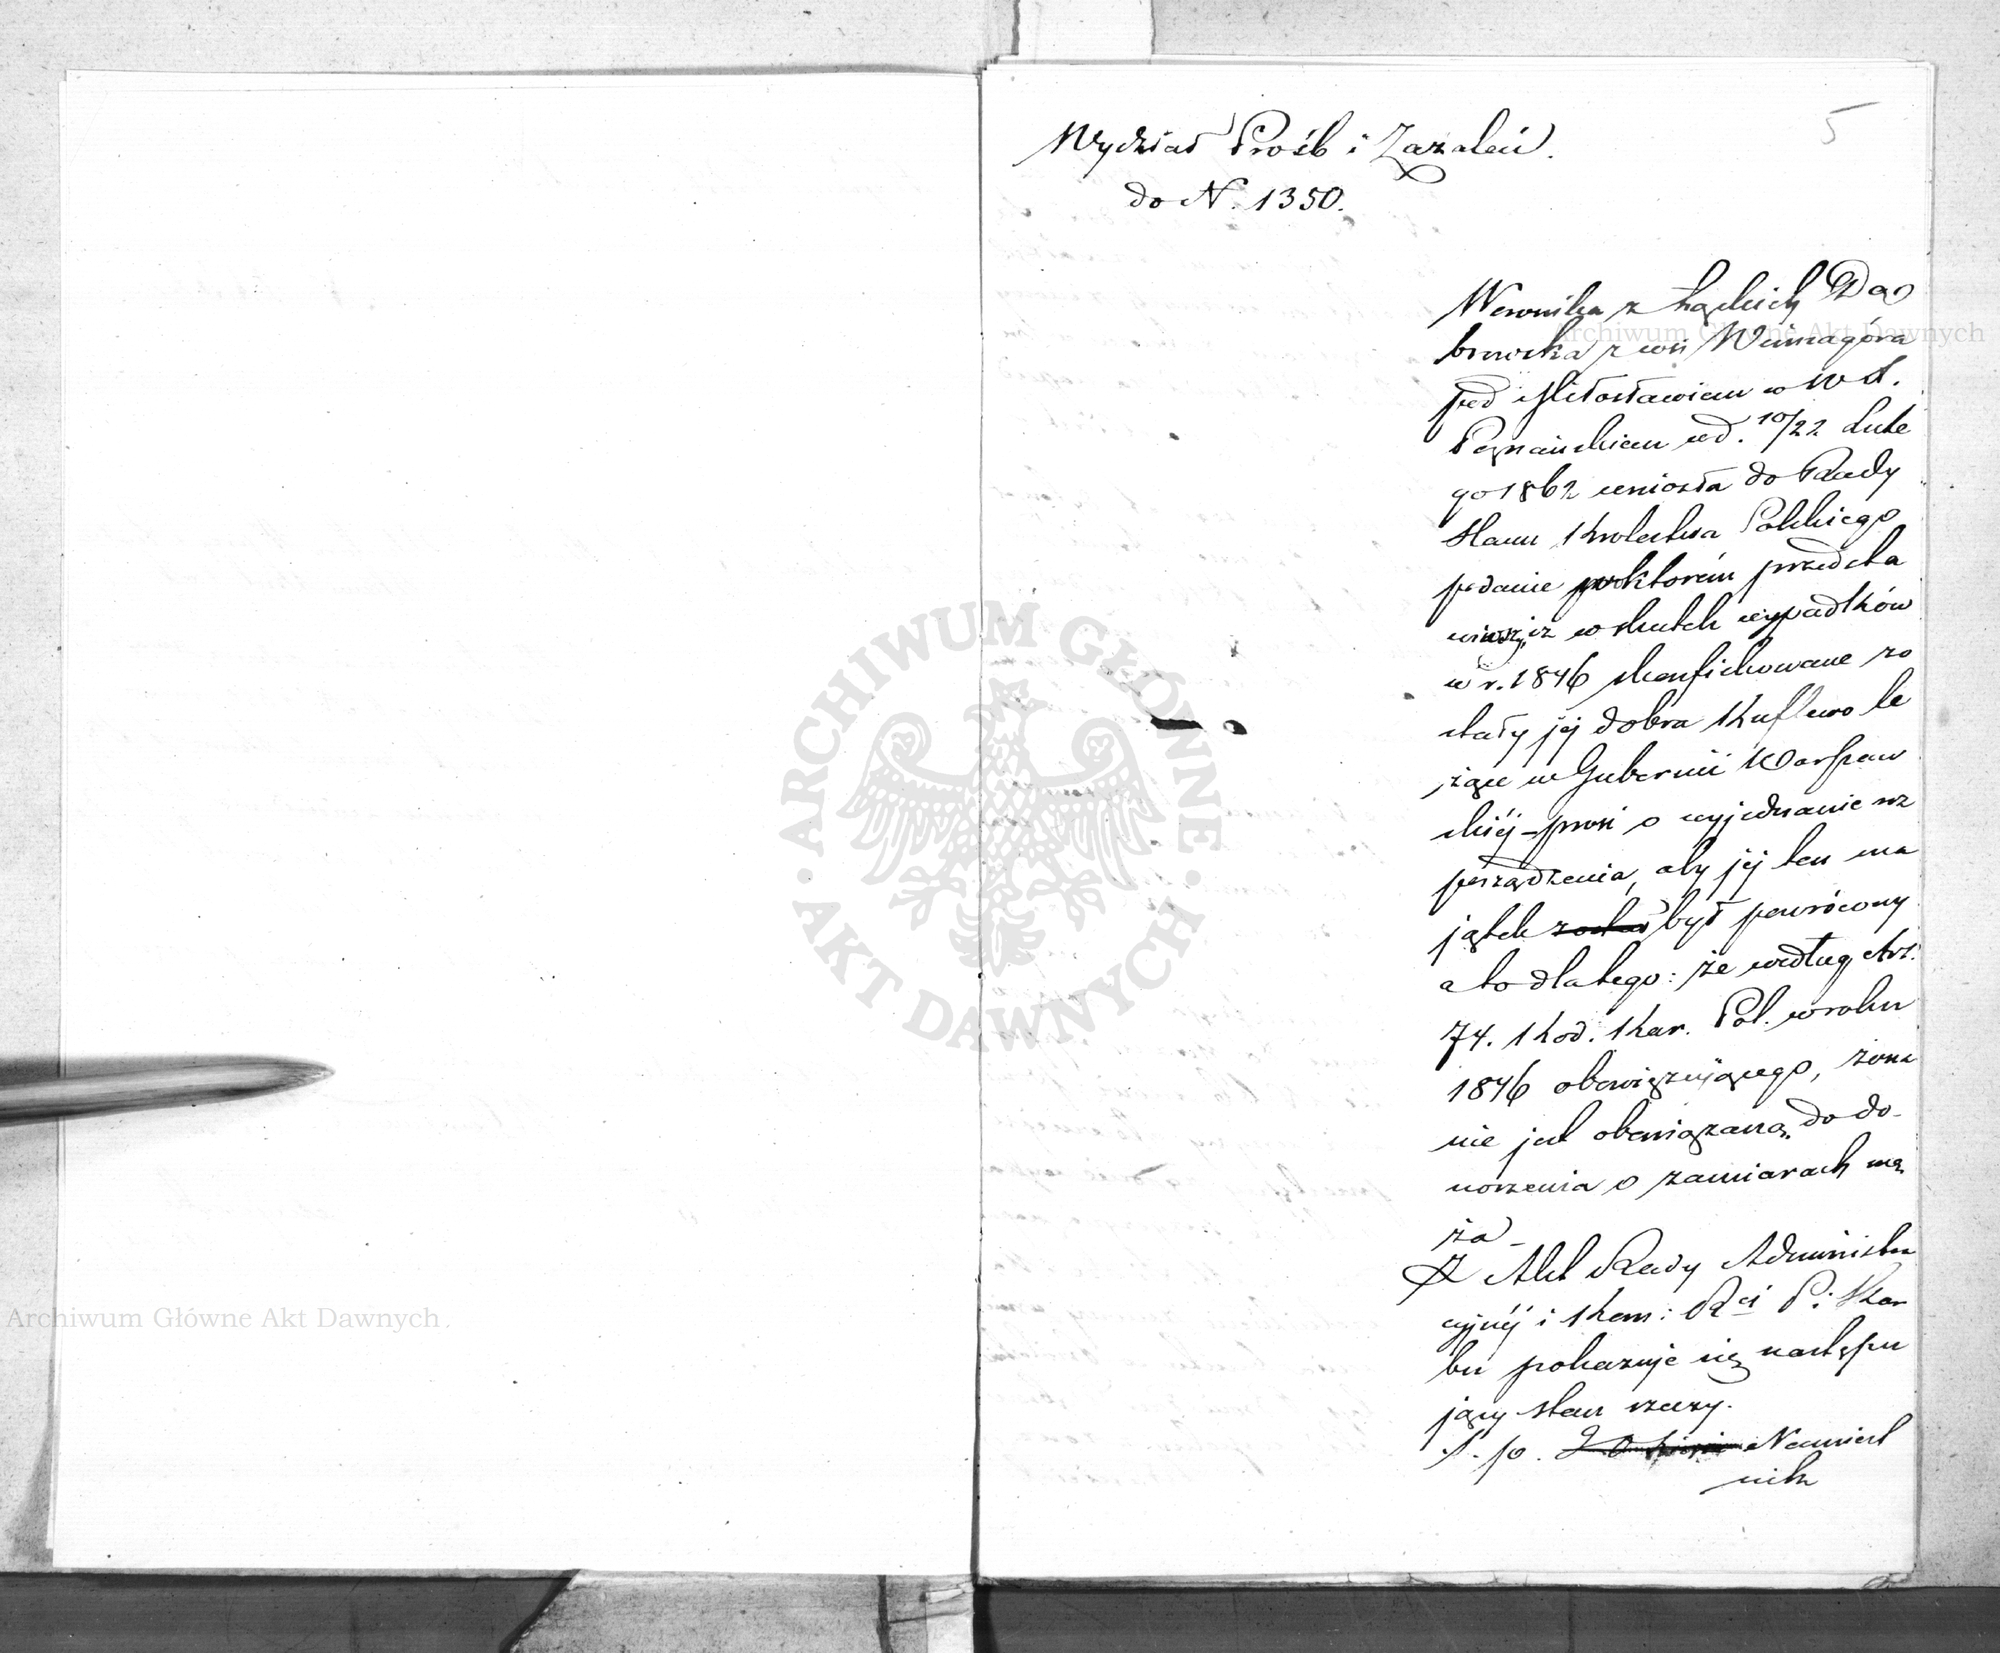 5
Wydział Próśb i Zażaleń.
do N. 1350.
Weronika z Łąckich Dą
browska z wsi Winnagóra
pod Miłosławiem w W. X.
Poznańskiem pod d. 10/22 Lute
go 1862 wniosła do Rady
Stanu Królestwa Polskiego
podanie w którém przedsta
wiwszy, iż w skutek wypadków
w r. 1846 skonfiskowane zo
stały jej dobra Kuflewo le
żące w Gubernii Warszaw
skiéj – prosi o wyjednanie roz
porządzenia, aby jej ten ma
jątek został był powrócony
a to dlatego: że według Art.
74. Kod. Kar. Pol. w roku
1846 obowiązującego, żona
nie jest obowiązaną do do-
noszenia o zamiarach mę
ża –
Z Akt Rady Administra
cyjnéj i Kom: Rej P. i Skar
bu pokazuje się następu
jący stan rzeczy.
Ś. p. Namiest
nik
ARCHIWUM GŁÓWNE
AKT DAWNYCH
Archiwum Główne Akt Dawnych
Archiwum Główne Akt Dawnych